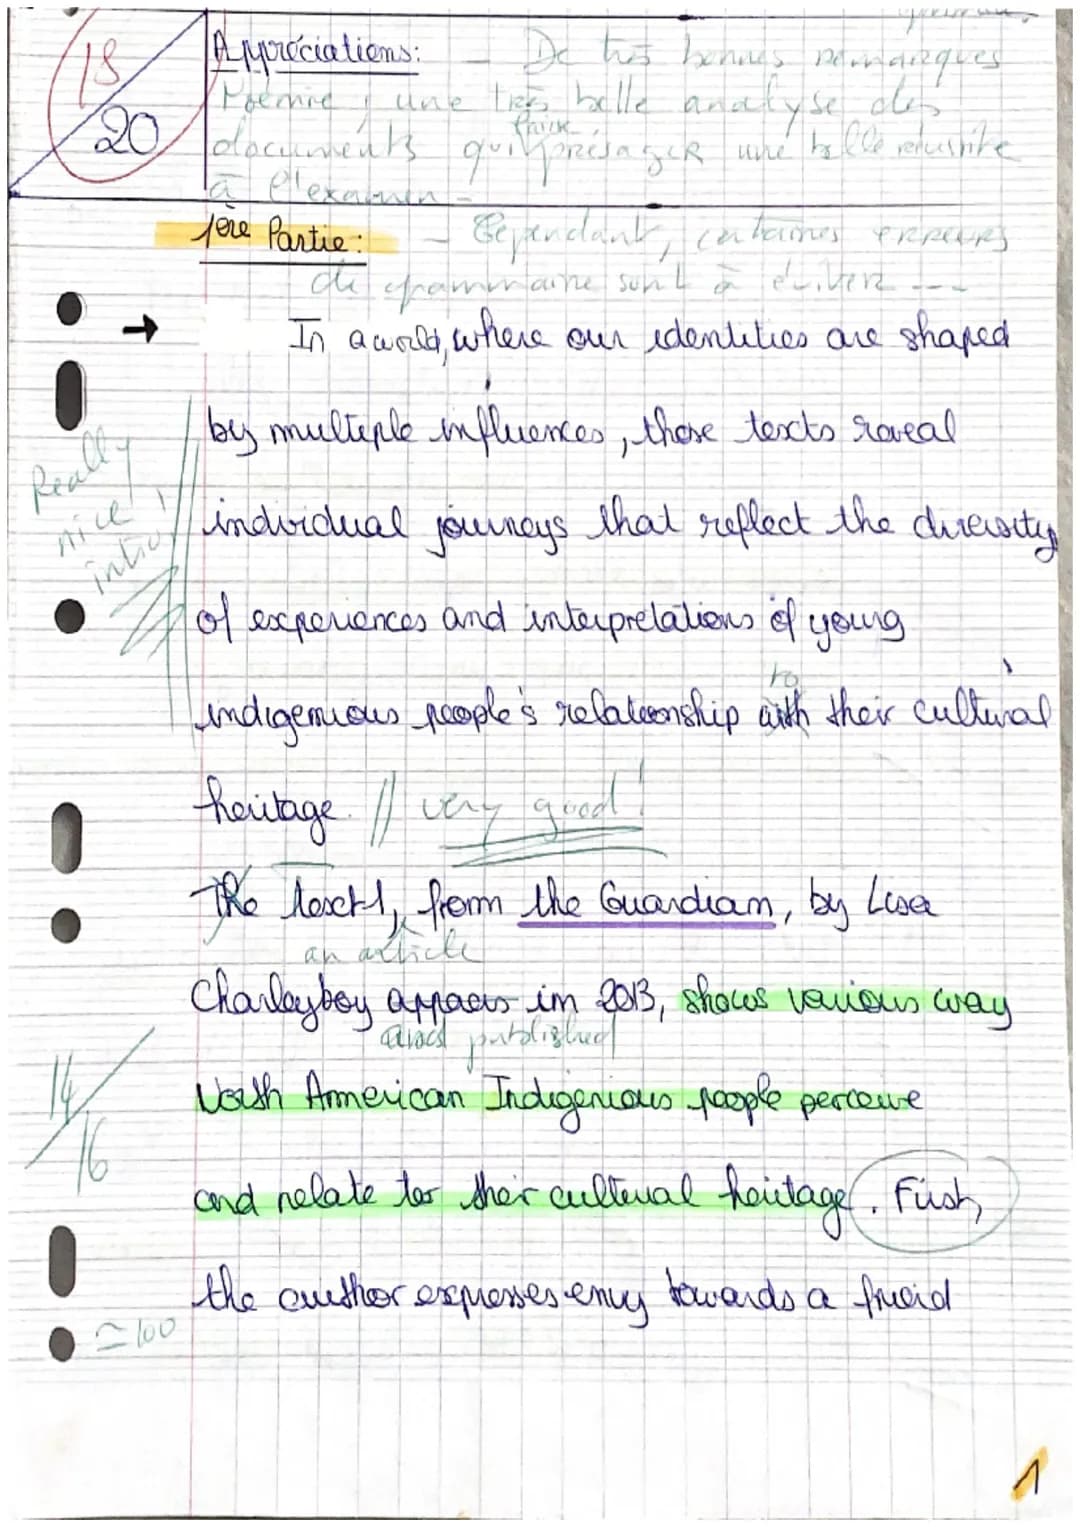 18
20
Appréciations: - De très bonnes remarques
Noémie, une très belle analyse des
documents qui présager une belle réussite
faire
à l'examen -
1ère Partie: - Cependant, certaines erreurs
de grammaire sont à éviter ---
→ In a world, where our identities are shaped
by multiple influences, those texts reveal
Really
nice
intro!
individual journeys that reflect the diversity
of experiences and interpretations of young
to
indigenious people's relationship with their cultural
heritage. // very good!
The text 1, from the Guardian, by Lisa
an article
Charleyboy appaers in 2013, shows various way
and published
14
16
North American Indigenious people perceive
and relate to their cultural heritage. First,
the author expresses envy towards a frieid
≃ 100
1